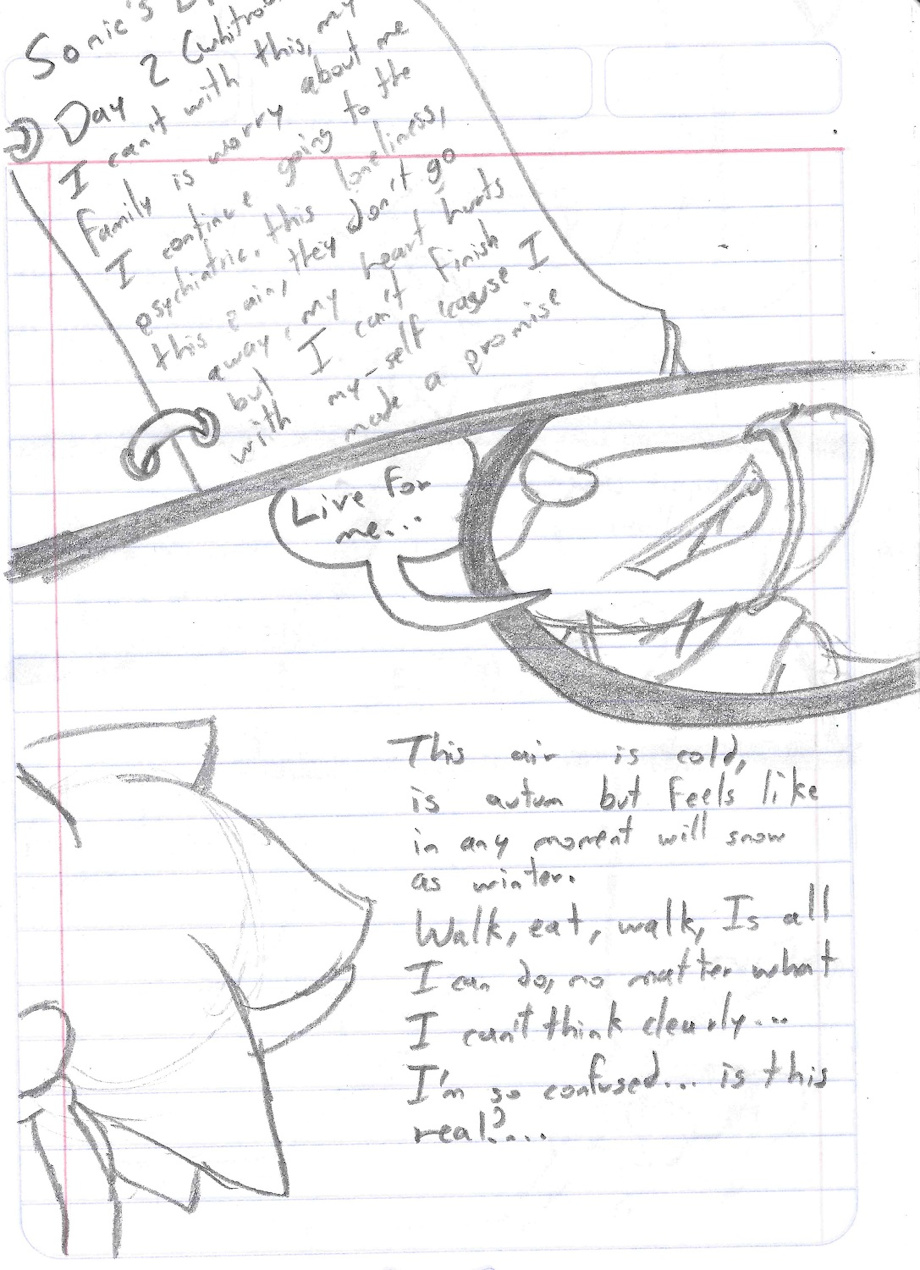 Sonic's
Day 2 (whitho
I can't with this, my
family is worry about me
I continue going to the
psychiatric. this loneliness,
this pain, they don't go
away, my heart hurts
but I can't finish
with my-self cause I
made a promise
Live for
me...
This air is cold,
is autum but feels like
in any moment will snow
as winter.
Walk, eat, walk, Is all
I can do, no matter what
I can't think clearly...
I'm so confused... is this
real?....